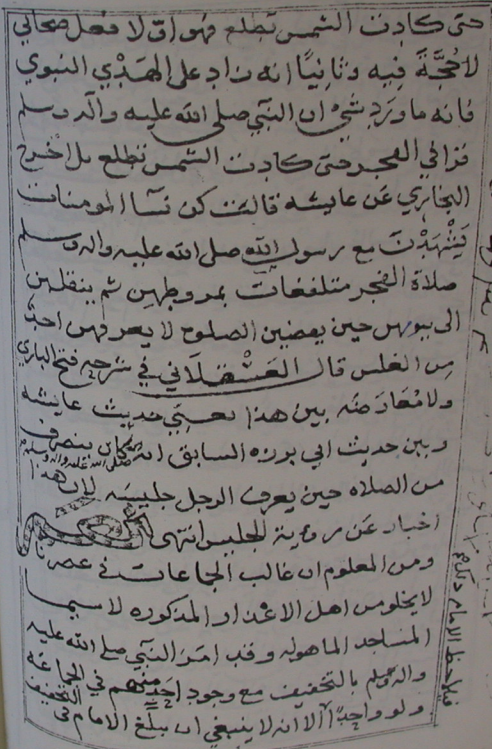 حتى كادت الشمس تطلع فهو اولا فعل صحابي
لا حجة فيه وثانيا انه زاد على الهدي النبوي
فانه ما ورد شئ ان النبي صلى الله عليه واله وسلم
قرا في الفجر حتى كادت الشمس تطلع بل اخرج
البخاري عن عايشه قالت كن نسآ المومنات
يشهدن مع رسول الله صلى الله عليه واله وسلم
صلاة الفجر متلفعات بمروطهن ثم ينقلبن
الى بيوتهن حين يقضين الصلوة لا يعرفهن احد
من الغلس قال العسقلاني في شرحه فتح الباري
ولا معارضه بين هذا يعني حديث عايشه
وبين حديث ابي برزه السابق انه كان ينصرف
صلى الله عليه واله وسلم
من الصلاه حين يعرف الرجل جليسه لان هذا
اخبار عن روية الجليس انتهى
ومن المعلوم ان غالب الجماعات في عصرنا
لا يخلو من اهل الاعذار المذكوره لاسيما
المساجد الماهوله وقد امر النبي صلى الله عليه
واله وسلم بالتخفيف مع وجود احد منهم في الجماعة
ولو واحدا الا انه لا ينبغي ان يبلغ الامام في
التخفيف
فيلاحظ الامام